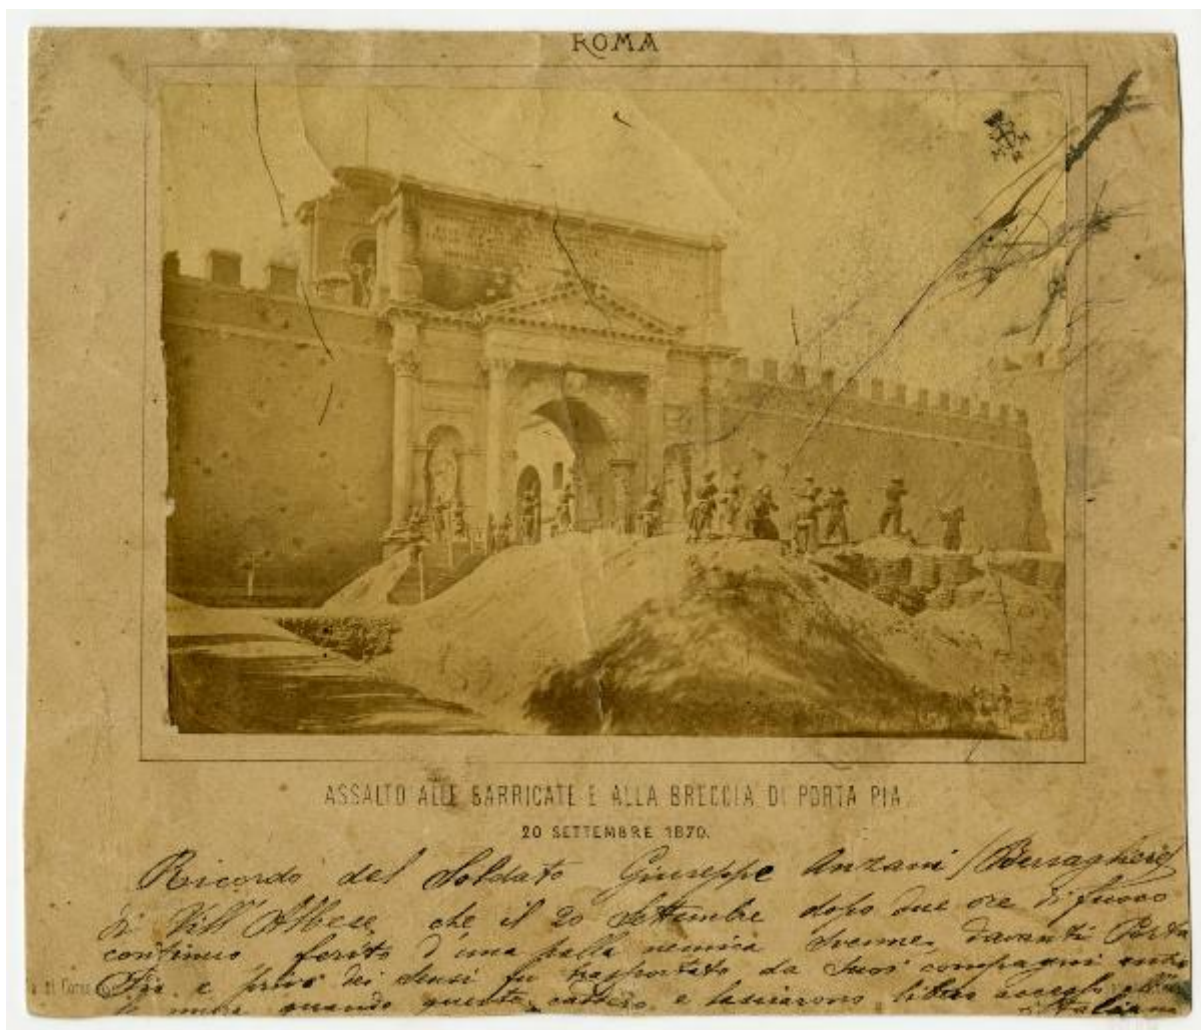 ROMA
ASSALTO ALLE BARRICATE E ALLA BRECCIA DI PORTA PIA
20 SETTEMBRE 1870.
Ricordo del Soldato Giuseppe Anzani (Bersagliere)
di Vill'Albese che il 20 Settembre dopo due ore di fuoco
continuo ferito d'una palla nemica svenne, davanti Porta
Pia e privo dei sensi fu trasportato da suoi compagni entro
le mura quando queste caddero e lasciarono libero accesso
italiane